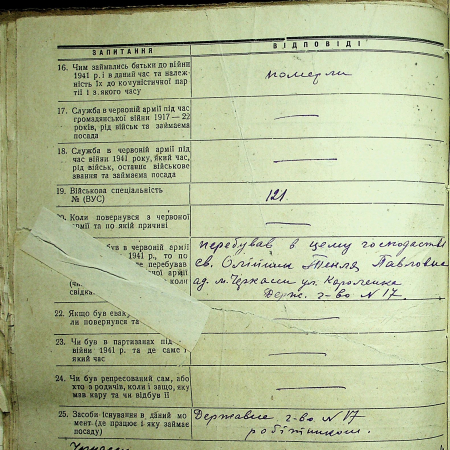 ЗАПИТАННЯ ВІДПОВІДІ
16. Чим займались батьки до війни
1941 р. і в даний час та належ-
ність їх до комуністичної пар-
тії і з якого часу
померли
17. Служба в червоній армії під час
громадянської війни 1917—22
років, рід військ та займаєма
посада
18. Служба в червоній армії під
час війни 1941 року, який час,
рід військ, останнє військове
звання та займаєма посада
19. Військова спеціальність
№ (ВУС)
121.
20. Коли повернувся з червоної
армії та по якій причині
був в червоній армії
1941 р., то по
перебував
армії
коли
свідка
перебував в цему господастві
св. Олійник Текля Павловна
ад. м. Черкаси ул. Короленка
Держ. г-во N 17
22. Якщо був
ли повернувся та
23. Чи був в партизанах під
війни 1941 р. та де саме і
який час
24. Чи був репресований сам, або
хто з родичів, коли і защо, яку
мав кару та чи відбув її
25. Засоби існування в даний мо-
мент (де працює і яку займає
посаду)
Державне г-во N 17
робітником.